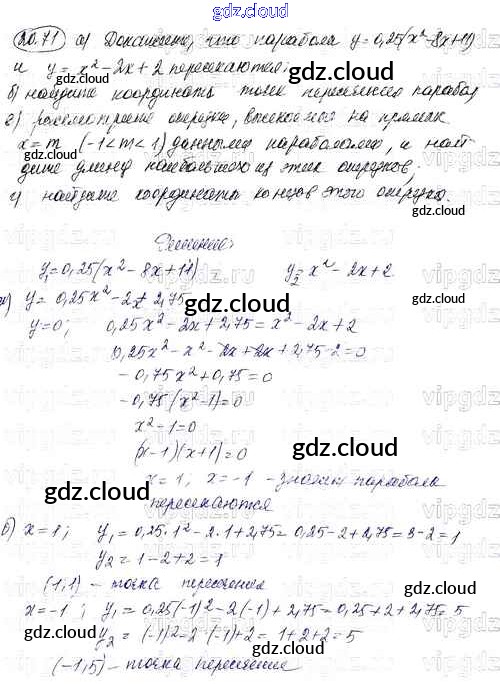 gdz.cloud
20.71 а) Докажите, что парабола y = 0,25(x² - 8x + 11)
и y = x² - 2x + 2 пересекаются;
б) найдите координаты точек пересечения парабол
в) рассмотрите отрезки, высекаемые на прямых
x = m (-1 < m < 1) данными параболами, и най-
дите длину наибольшего из этих отрезков,
г) найдите координаты концов этого отрезка.
Решение:
y₁ = 0,25(x² - 8x + 11) y₂ = x² - 2x + 2.
а) y = 0,25x² - 2x + 2,75
y = 0; 0,25x² - 2x + 2,75 = x² - 2x + 2
0,25x² - x² - 2x + 2x + 2,75 - 2 = 0
- 0,75x² + 0,75 = 0
- 0,75(x² - 1) = 0
x² - 1 = 0
(x - 1)(x + 1) = 0
x = 1; x = -1 - значит парабола
пересекаются
б) x = 1; y₁ = 0,25·1² - 2·1 + 2,75 = 0,25 - 2 + 2,75 = 3 - 2 = 1
y₂ = 1 - 2 + 2 = 1
(1;1) - точка пересечения
x = -1; y₁ = 0,25(-1)² - 2(-1) + 2,75 = 0,25 + 2 + 2,75 = 5
y₂ = (-1)² - 2·(-1) + 2 = 1 + 2 + 2 = 5
(-1,5) - точка пересечение
gdz.cloud